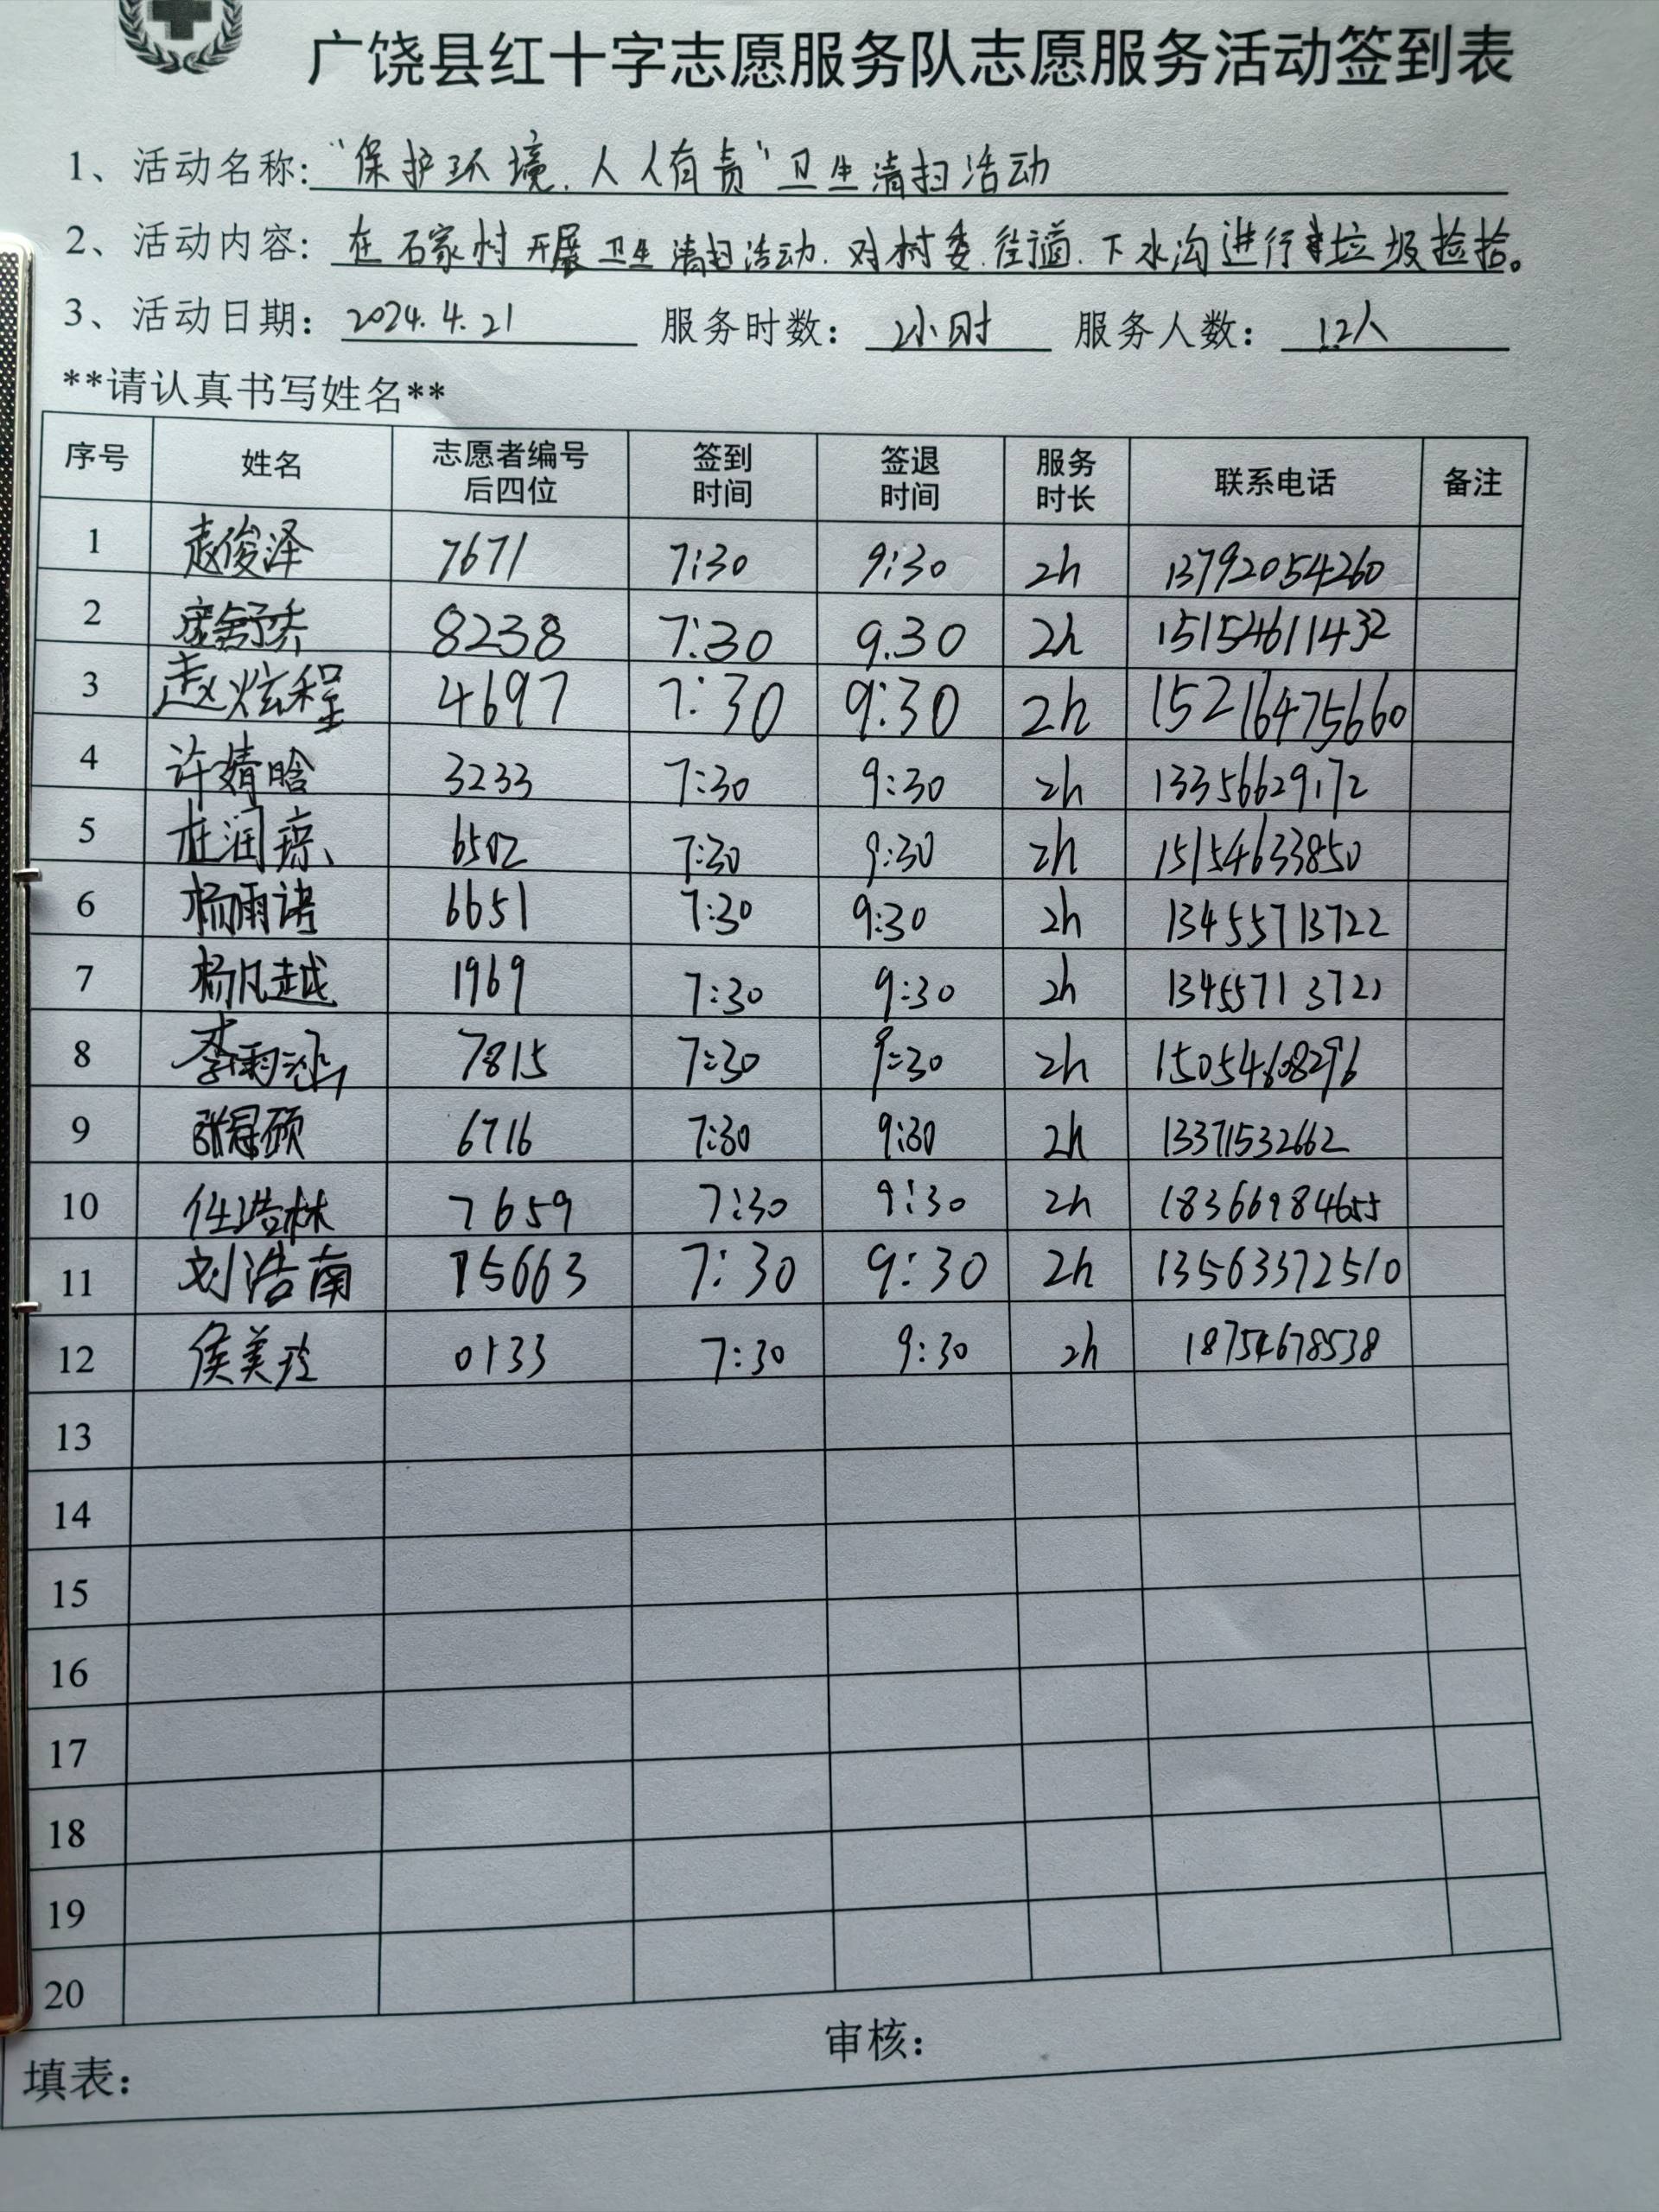 广饶县红十字志愿服务队志愿服务活动签到表
1、活动名称:“保护环境.人人有责”卫生清扫活动
2、活动内容: 在石家村开展卫生清扫活动.对村委.街道.下水沟进行垃圾捡拾。
3、活动日期: 2024.4.21 服务时数: 2小时 服务人数: 12人
**请认真书写姓名**
序号 姓名 志愿者编号后四位 签到时间 签退时间 服务时长 联系电话 备注
1 赵俊泽 7671 7:30 9:30 2h 13792054260
2 8238 7:30 9.30 2h 15154611432
3 赵炫程 4697 7:30 9:30 2h 15216475660
4 许婧晗 3233 7:30 9:30 2h 13356629172
5 6502 7:30 9:30 2h 15154633850
6 杨雨诺 6651 7:30 9:30 2h 13455713722
7 杨凡越 1969 7:30 9:30 2h 13455713721
8 7815 7:30 9:30 2h 15054608296
9 6716 7:30 9:30 2h 13371532662
10 任浩林 7659 7:30 9:30 2h 18366984655
11 刘浩南 15663 7:30 9:30 2h 13563372510
12 侯美玲 0133 7:30 9:30 2h 18754678538
13
14
15
16
17
18
19
20
填表: 审核: